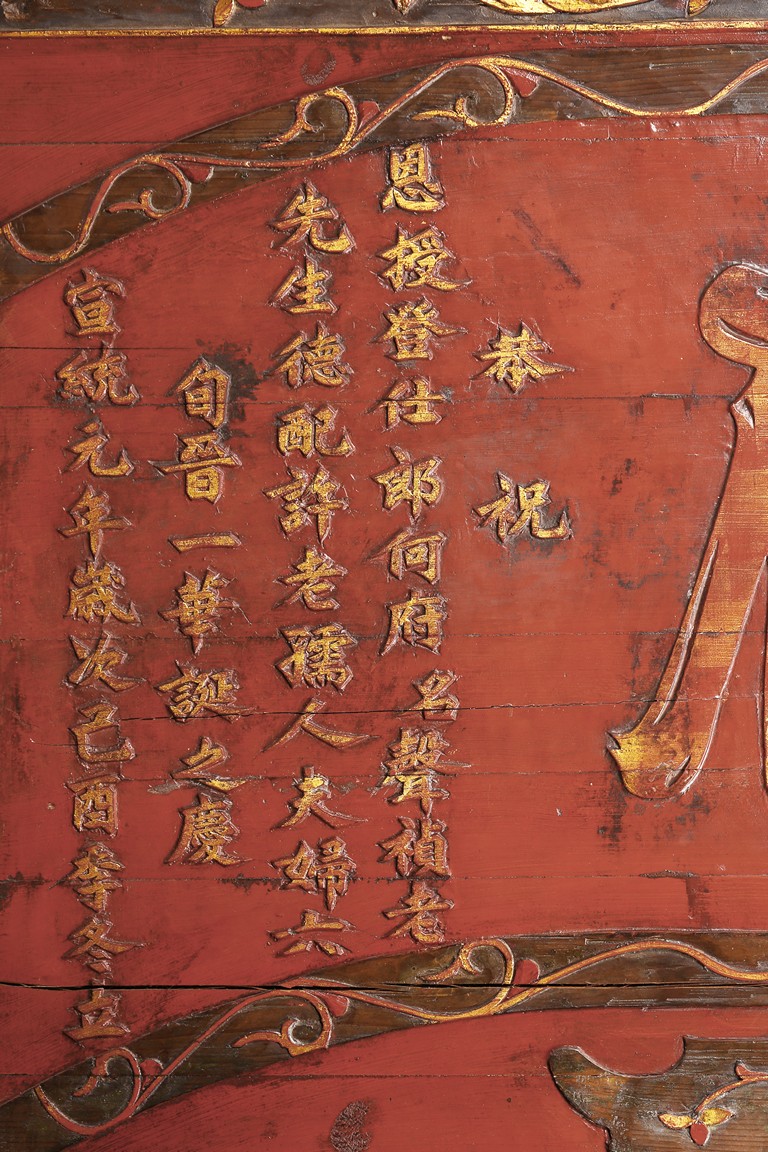 恭祝
恩授登仕郎何府名聲禎老
先生德配許老孺人夫婦六
旬晉一華誕之慶
宣統元年歲次己酉季冬立